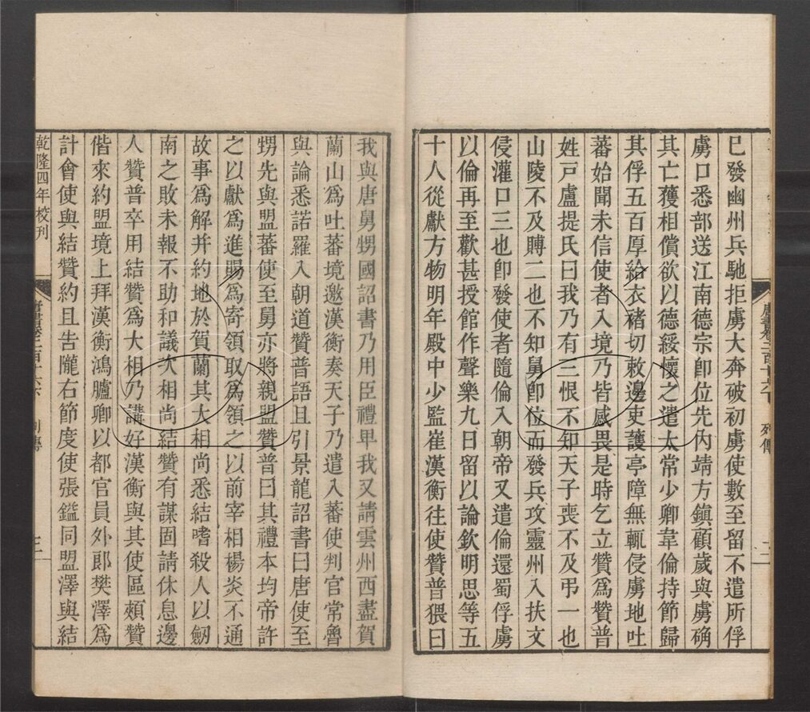 巳發幽州兵馳拒虜大奔破初虜使數至留不遣所俘
虜口悉部送江南德宗卽位先內靖方鎮顧歲與虜确
其亡獲相償欲以德綏懷之遣太常少卿韋倫持節歸
其俘五百厚給衣褚切敕邊吏護亭障無輒侵虜地吐
蕃始聞未信使者入境乃皆感畏是時乞立贊爲贊普
姓戸盧提氏曰我乃有三恨不知天子喪不及弔一也
山陵不及賻二也不知舅卽位而發兵攻靈州入扶文
侵灌口三也卽發使者隨倫入朝帝又遣倫還蜀俘虜
以倫再至歡甚授館作聲樂九日留以論欽明思等五
十人從獻方物明年殿中少監崔漢衡往使贊普猥曰
唐書卷二百十六下 列傳 二
我與唐舅甥國詔書乃用臣禮卑我又請雲州西盡賀
蘭山爲吐蕃境邀漢衡奏天子乃遣入蕃使判官常魯
與論悉諾羅入朝道贊普語且引景龍詔書曰唐使至
甥先與盟蕃使至舅亦將親盟贊普曰其禮本均帝許
之以獻爲進賜爲寄領取爲領之以前宰相楊炎不通
故事爲解并約地於賀蘭其大相尚悉結嗜殺人以劒
南之敗未報不助和議次相尚結贊有謀固請休息邊
人贊普卒用結贊爲大相乃講好漢衡與其使區頰贊
偕來約盟境上拜漢衡鴻臚卿以都官員外郞樊澤爲
計會使與結贊約且吿隴右節度使張鎰同盟澤與結
乾隆四年校刊
唐書卷二百十六下 列傳 三